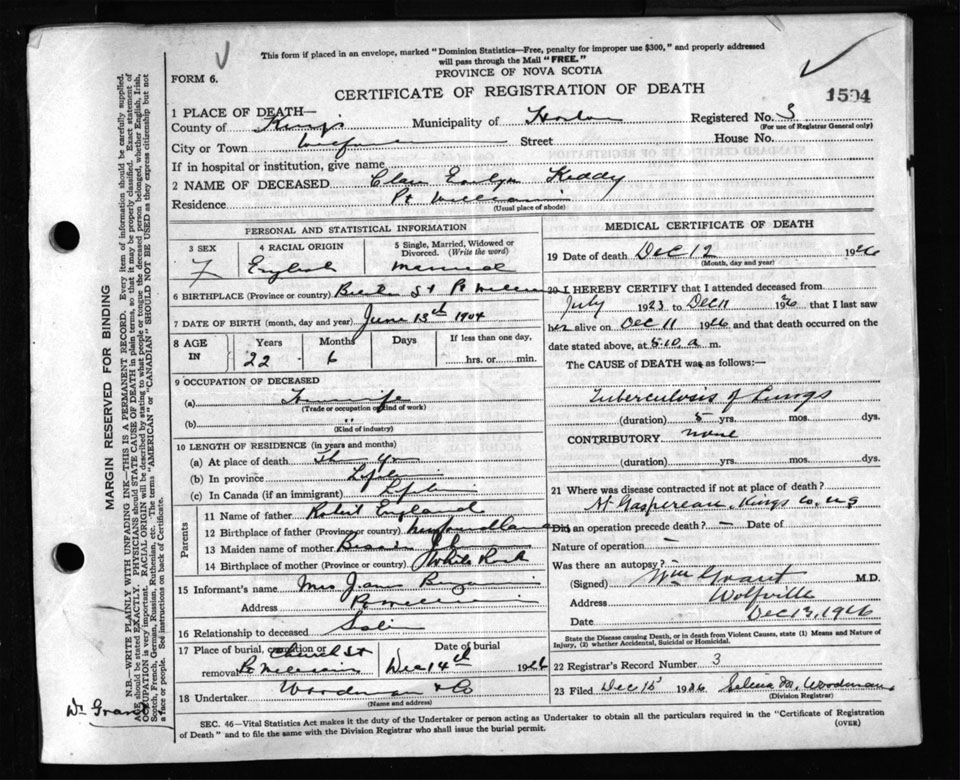 This form if placed in an envelope, marked "Dominion Statistics—Free, penalty for improper use $300," and properly addressed
will pass through the Mail "FREE."
PROVINCE OF NOVA SCOTIA
FORM 6.
CERTIFICATE OF REGISTRATION OF DEATH
1504
1 PLACE OF DEATH—
County of Kings Municipality of Horton Registered No. 3
(For use of Registrar General only)
City or Town Street House No.
If in hospital or institution, give name
2 NAME OF DECEASED Evelyn Keddy
Residence Pt Williams
(Usual place of abode)
PERSONAL AND STATISTICAL INFORMATION
3 SEX 4 RACIAL ORIGIN 5 Single, Married, Widowed or
Divorced. (Write the word)
F English Married
6 BIRTHPLACE (Province or country) St Pt Williams
7 DATE OF BIRTH (month, day and year) June 13th 1904
8 AGE IN Years Months Days If less than one day,
22 6 hrs. or min.
9 OCCUPATION OF DECEASED
(a) Housewife
(Trade or occupation or kind of work)
(b) "
(Kind of industry)
10 LENGTH OF RESIDENCE (in years and months)
(a) At place of death
(b) In province Life
(c) In Canada (if an immigrant) Life
Parents
11 Name of father Robert England
12 Birthplace of father (Province or country) Newfoundland
13 Maiden name of mother Bessie
14 Birthplace of mother (Province or country) White Rock
15 Informant's name Mrs
Address Pt Williams
16 Relationship to deceased
17 Place of burial, cremation or
removal Church St
Pt Williams
Date of burial
Dec 14th 1926
18 Undertaker Woodman & Co
(Name and address)
MEDICAL CERTIFICATE OF DEATH
19 Date of death Dec 12 1926
(Month, day and year)
20 I HEREBY CERTIFY that I attended deceased from
July 1923 to Dec 11 1926 that I last saw
her alive on Dec 11 1926 and that death occurred on the
date stated above, at 5.10 a m.
The CAUSE OF DEATH was as follows:—
Tuberculosis of Lungs
(duration) 5 yrs. mos. dys.
CONTRIBUTORY none
(duration) yrs. mos. dys.
21 Where was disease contracted if not at place of death?
At Gaspereau, Kings Co. N S
Did an operation precede death? – Date of
Nature of operation –
Was there an autopsy?
(Signed) Wm Grant M.D.
Address Wolfville
Date Dec 13, 1926
State the Disease causing Death, or in death from Violent Causes, state (1) Means and Nature of
Injury, (2) whether Accidental, Suicidal or Homicidal.
22 Registrar's Record Number 3
23 Filed Dec 15 1926 Woodman
(Division Registrar)
SEC. 46—Vital Statistics Act makes it the duty of the Undertaker or person acting as Undertaker to obtain all the particulars required in the "Certificate of Registration
of Death" and to file the same with the Division Registrar who shall issue the burial permit.
(OVER)
MARGIN RESERVED FOR BINDING
N.B.—WRITE PLAINLY WITH UNFADING INK—THIS IS A PERMANENT RECORD. Every item of information should be carefully supplied.
AGE should be stated EXACTLY. PHYSICIANS should STATE CAUSE OF DEATH in plain terms, so that it may be properly classified. Exact statement of
OCCUPATION is very important. RACIAL ORIGIN will be described by stating to what people or tongue the deceased person belonged, whether English, Irish,
Scotch, French, German, Russian, Ruthenian, etc. The terms "AMERICAN" or "CANADIAN" SHOULD NOT BE USED as they express citizenship but not
a race or people. See instructions on back of Certificate.
Dr Grant